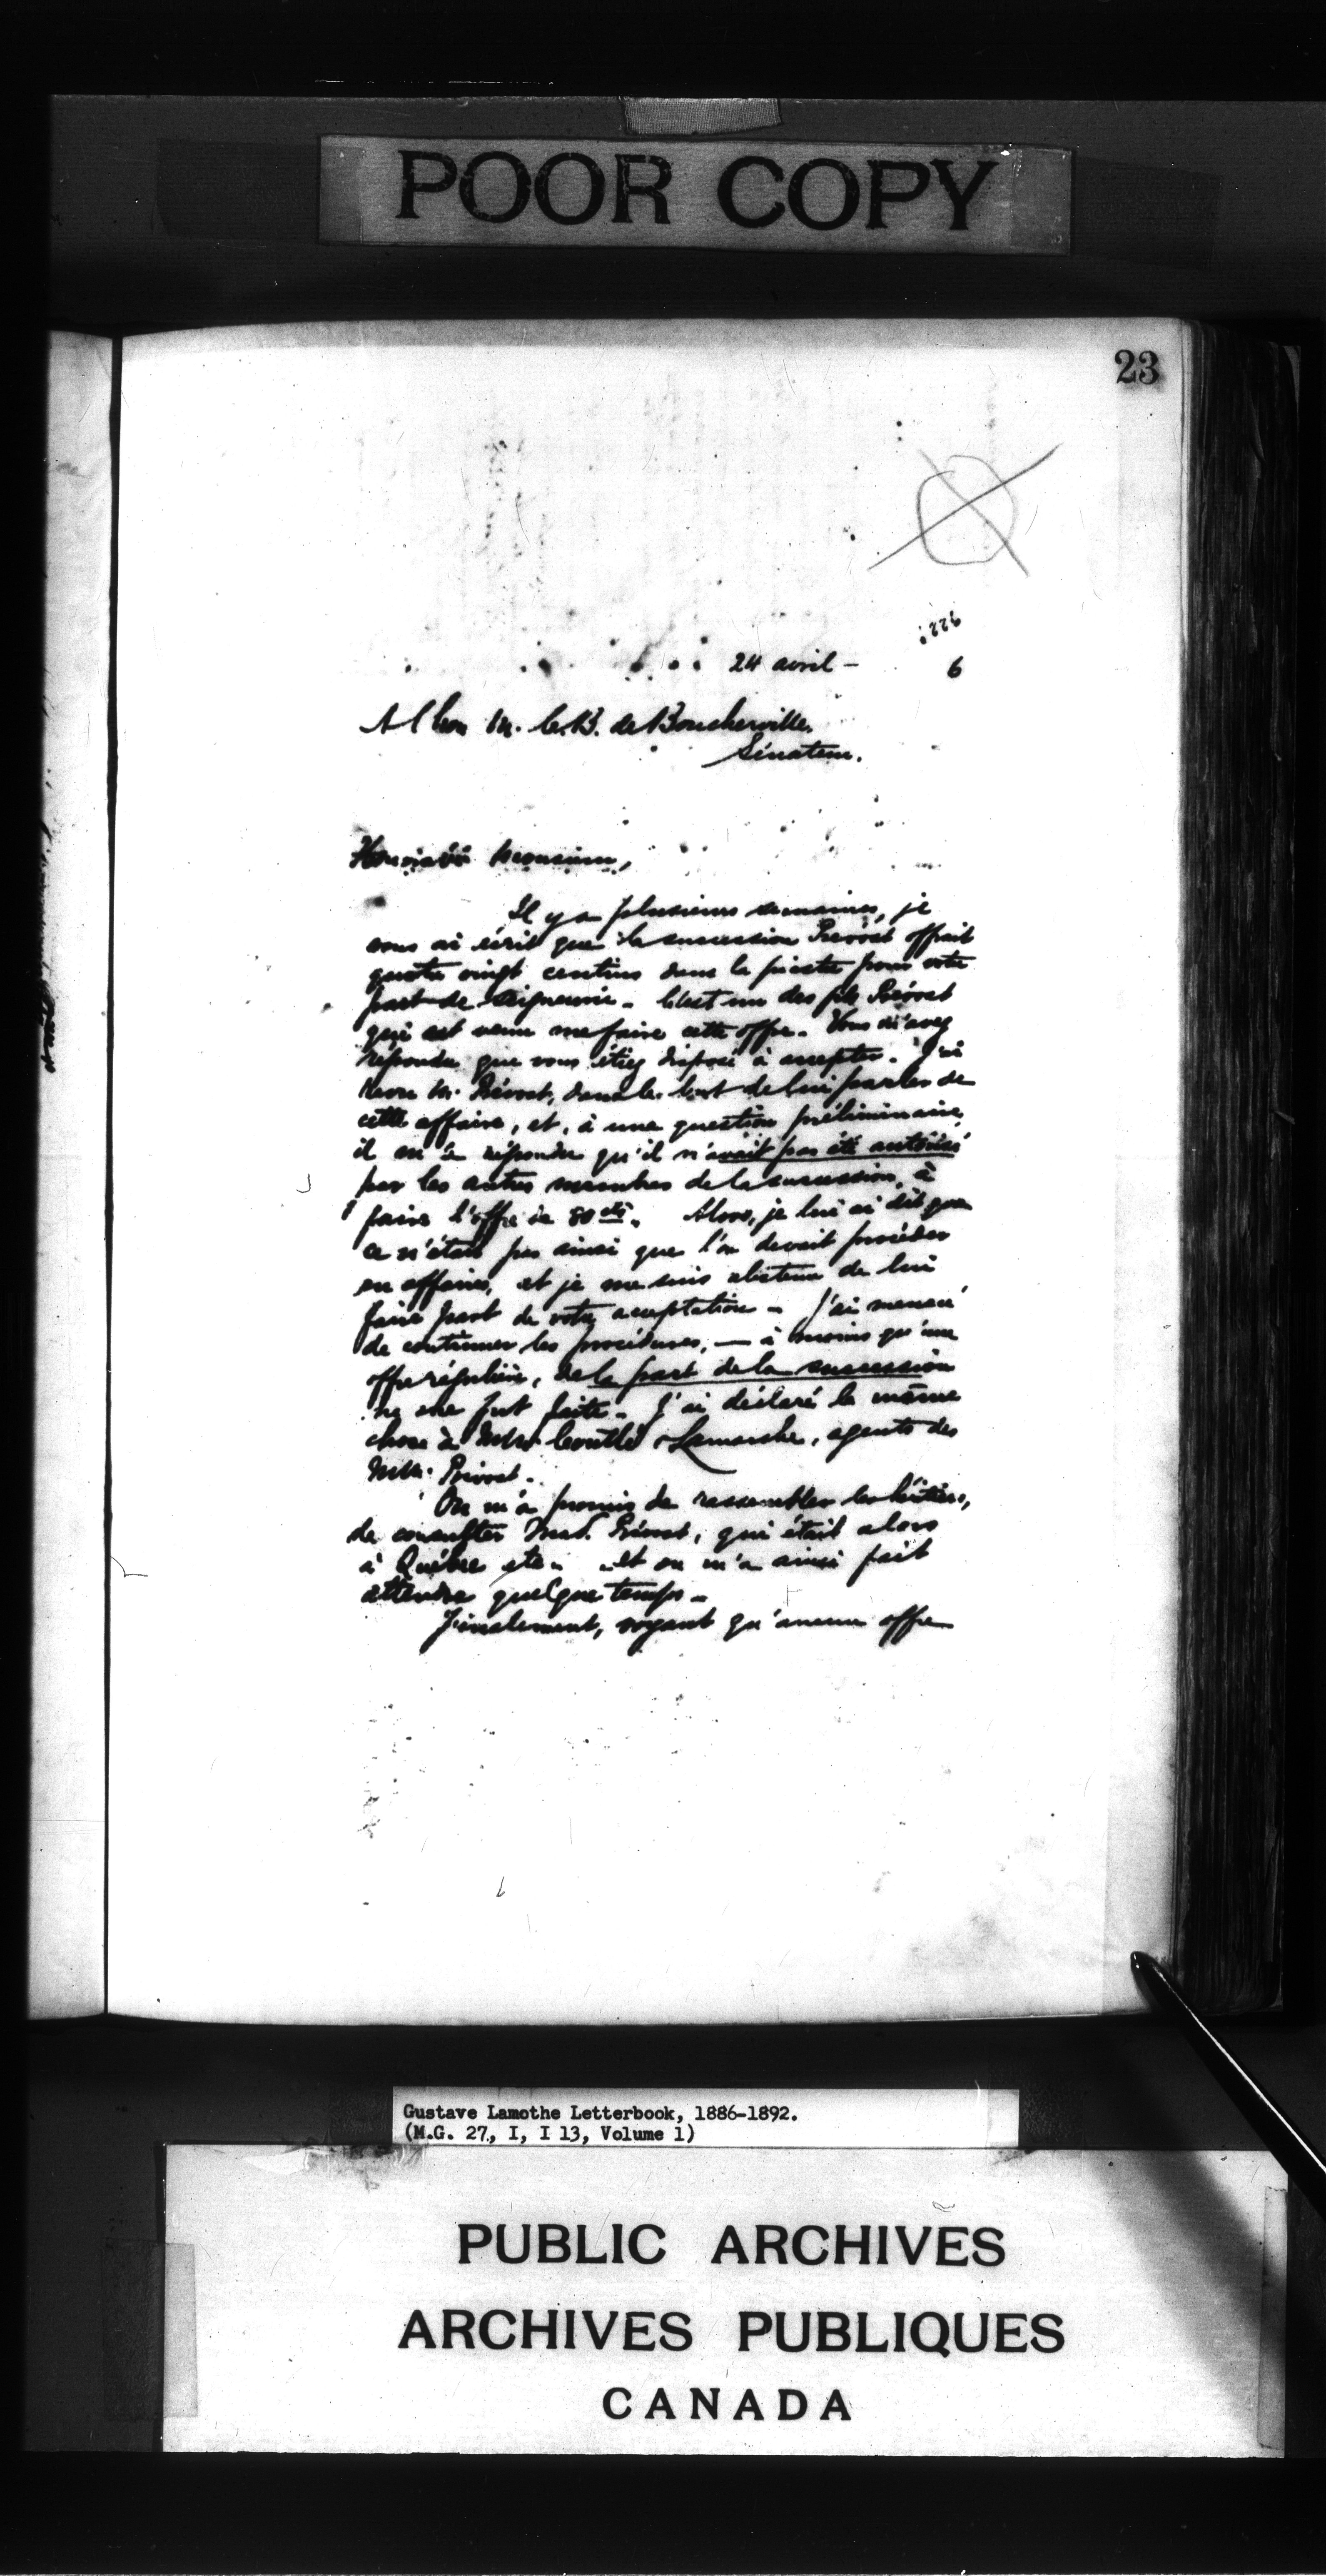 POOR COPY
23
24 avril — 6
A l'hon M. C. B. de Boucherville.
Sénateur.
Honorable Monsieur,
Il y a plusieurs semaines, je
vous ai écrit que la succession Prévost offrait
quatre vingt centins dans la piastre pour votre
part de Seigneurie. C'est un des fils Prévost
qui est venu me faire cette offre. Vous m'avez
répondu que vous étiez disposé à accepter. J'ai
revu M. Prévost, dans le but de lui parler de
cette affaire, et, à une question préliminaire,
il m'a répondu qu'il n'avait pas été autorisé
par les autres membres de la succession, à
faire l'offre de 80 cts. Alors, je lui ai dit que
ce n'était pas ainsi que l'on devait procéder
en affaires, et je me suis abstenu de lui
faire part de votre acceptation — J'ai menacé
de continuer les procédures, — à moins qu'une
offre régulière, de la part de la succession
ne me fut faite. J'ai déclaré la même
chose à MM. Coutlée Lamarche, agents des
MM. Prévost.
On m'a promis de rassembler les héritiers,
de consulter Mad. Prévost, qui était alors
à Québec etc. et on m'a ainsi fait
attendre quelque temps —
Finalement, voyant qu'aucune offre
Gustave Lamothe Letterbook, 1886-1892.
(M.G. 27, I, I 13, Volume 1)
PUBLIC ARCHIVES
ARCHIVES PUBLIQUES
CANADA